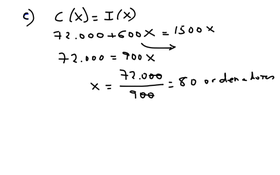 c) C(x) = I(x)
72.000 + 600x = 1500x
72.000 = 900x
x = 72.000 / 900 = 80 ordenadores